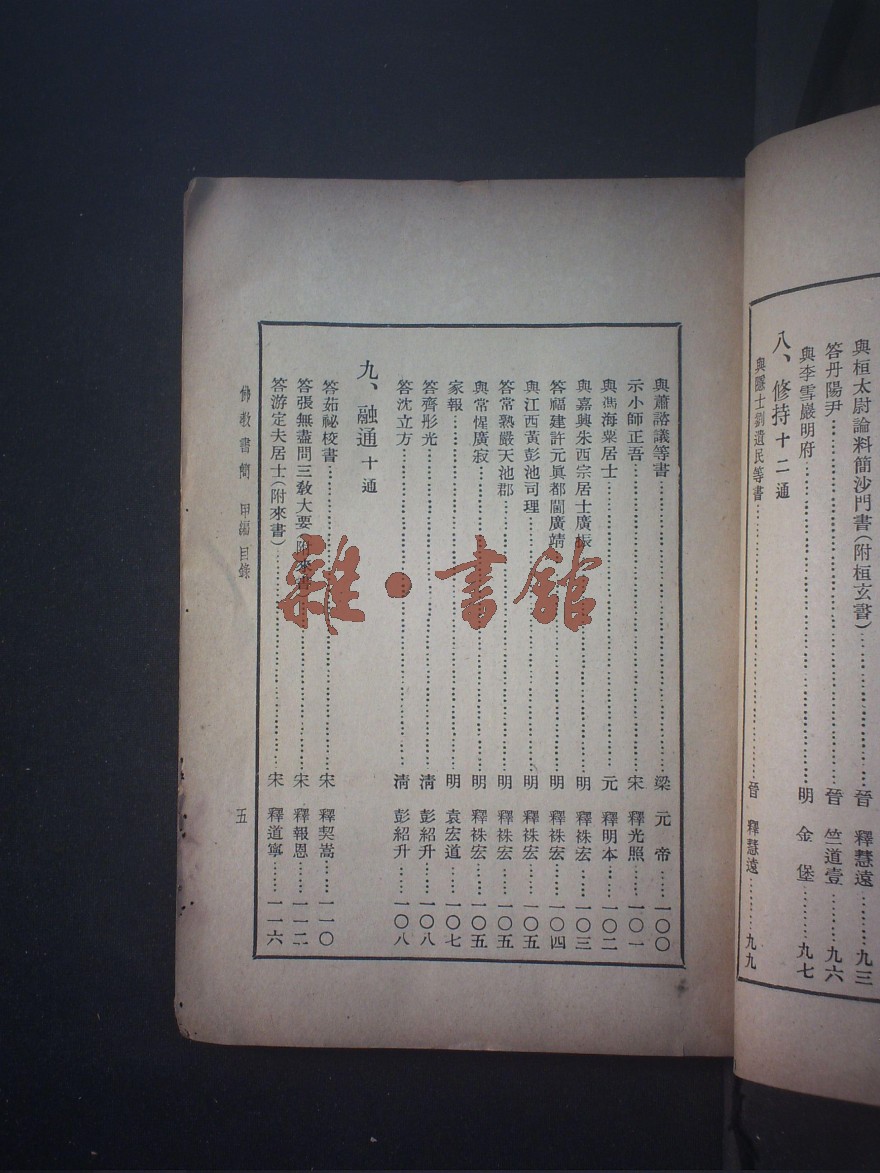 與桓太尉論料簡沙門書(附桓玄書)……晉 釋慧遠……九三
答丹陽尹……晉 竺道壹……九六
與李雪巖明府……明 金堡……九七
八、修持十二通
與隱士劉遺民等書……晉 釋慧遠……九九
與蕭諮議等書……梁 元帝……一〇〇
示小師正吾……宋 釋光照……一〇一
與馮海粟居士……元 釋明本……一〇二
與嘉興朱西宗居士廣振……明 釋袾宏……一〇三
答福建許元眞都閫廣靖……明 釋袾宏……一〇四
與江西黃彭池司理……明 釋袾宏……一〇五
答常熟嚴天池郡……明 釋袾宏……一〇五
與常惺廣寂……明 釋袾宏……一〇五
家報……明 袁宏道……一〇七
答齊彤光……淸 彭紹升……一〇八
答沈立方……淸 彭紹升……一〇八
九、融通十通
答茹祕校書……宋 釋契嵩……一一〇
答張無盡問三敎大要 附來書……宋 釋報恩……一一二
答游定夫居士(附來書)……宋 釋道寧……一一六
佛敎書簡 甲編 目錄
五
雜·書館